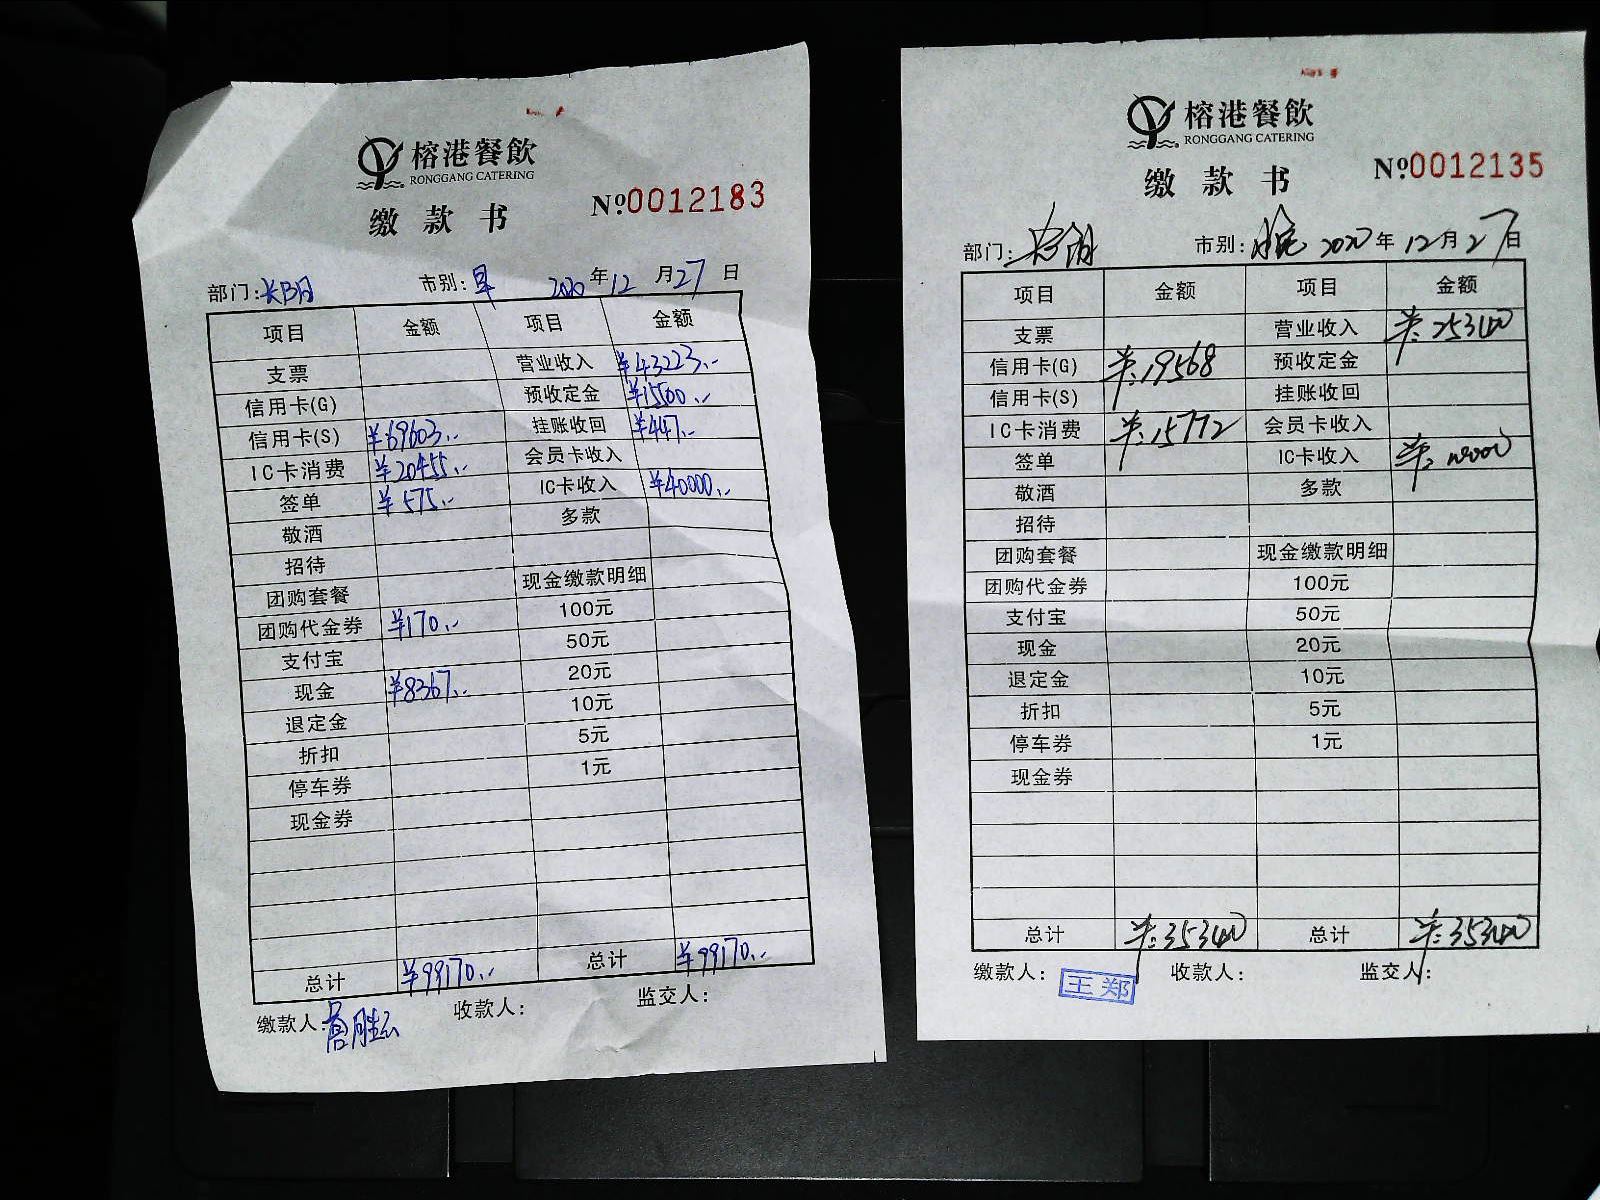 榕港餐飲
RONGGANG CATERING
缴款书
№0012183
部门: 市别:早 2020年12月27日
项目 金额 项目 金额
支票 营业收入 ¥43223.-
信用卡(G) 预收定金 ¥15500.-
信用卡(S) ¥69603.- 挂账收回 ¥447.-
IC卡消费 ¥20455.- 会员卡收入
签单 ¥575.- IC卡收入 ¥40000.-
敬酒 多款
招待
团购套餐 现金缴款明细
团购代金券 ¥170.- 100元
支付宝 50元
现金 ¥8367.- 20元
退定金 10元
折扣 5元
停车券 1元
现金券
总计 ¥99170.- 总计 ¥99170.-
缴款人: 收款人: 监交人:
榕港餐飲
RONGGANG CATERING
缴款书
№0012135
部门: 市别:晚 2020年12月27日
项目 金额 项目 金额
支票 营业收入 ¥:25340
信用卡(G) ¥:19568 预收定金
信用卡(S) 挂账收回
IC卡消费 ¥:15772 会员卡收入
签单 IC卡收入 ¥:10000
敬酒 多款
招待
团购套餐 现金缴款明细
团购代金券 100元
支付宝 50元
现金 20元
退定金 10元
折扣 5元
停车券 1元
现金券
总计 ¥:35340 总计 ¥:35340
缴款人: 王郑 收款人: 监交人: